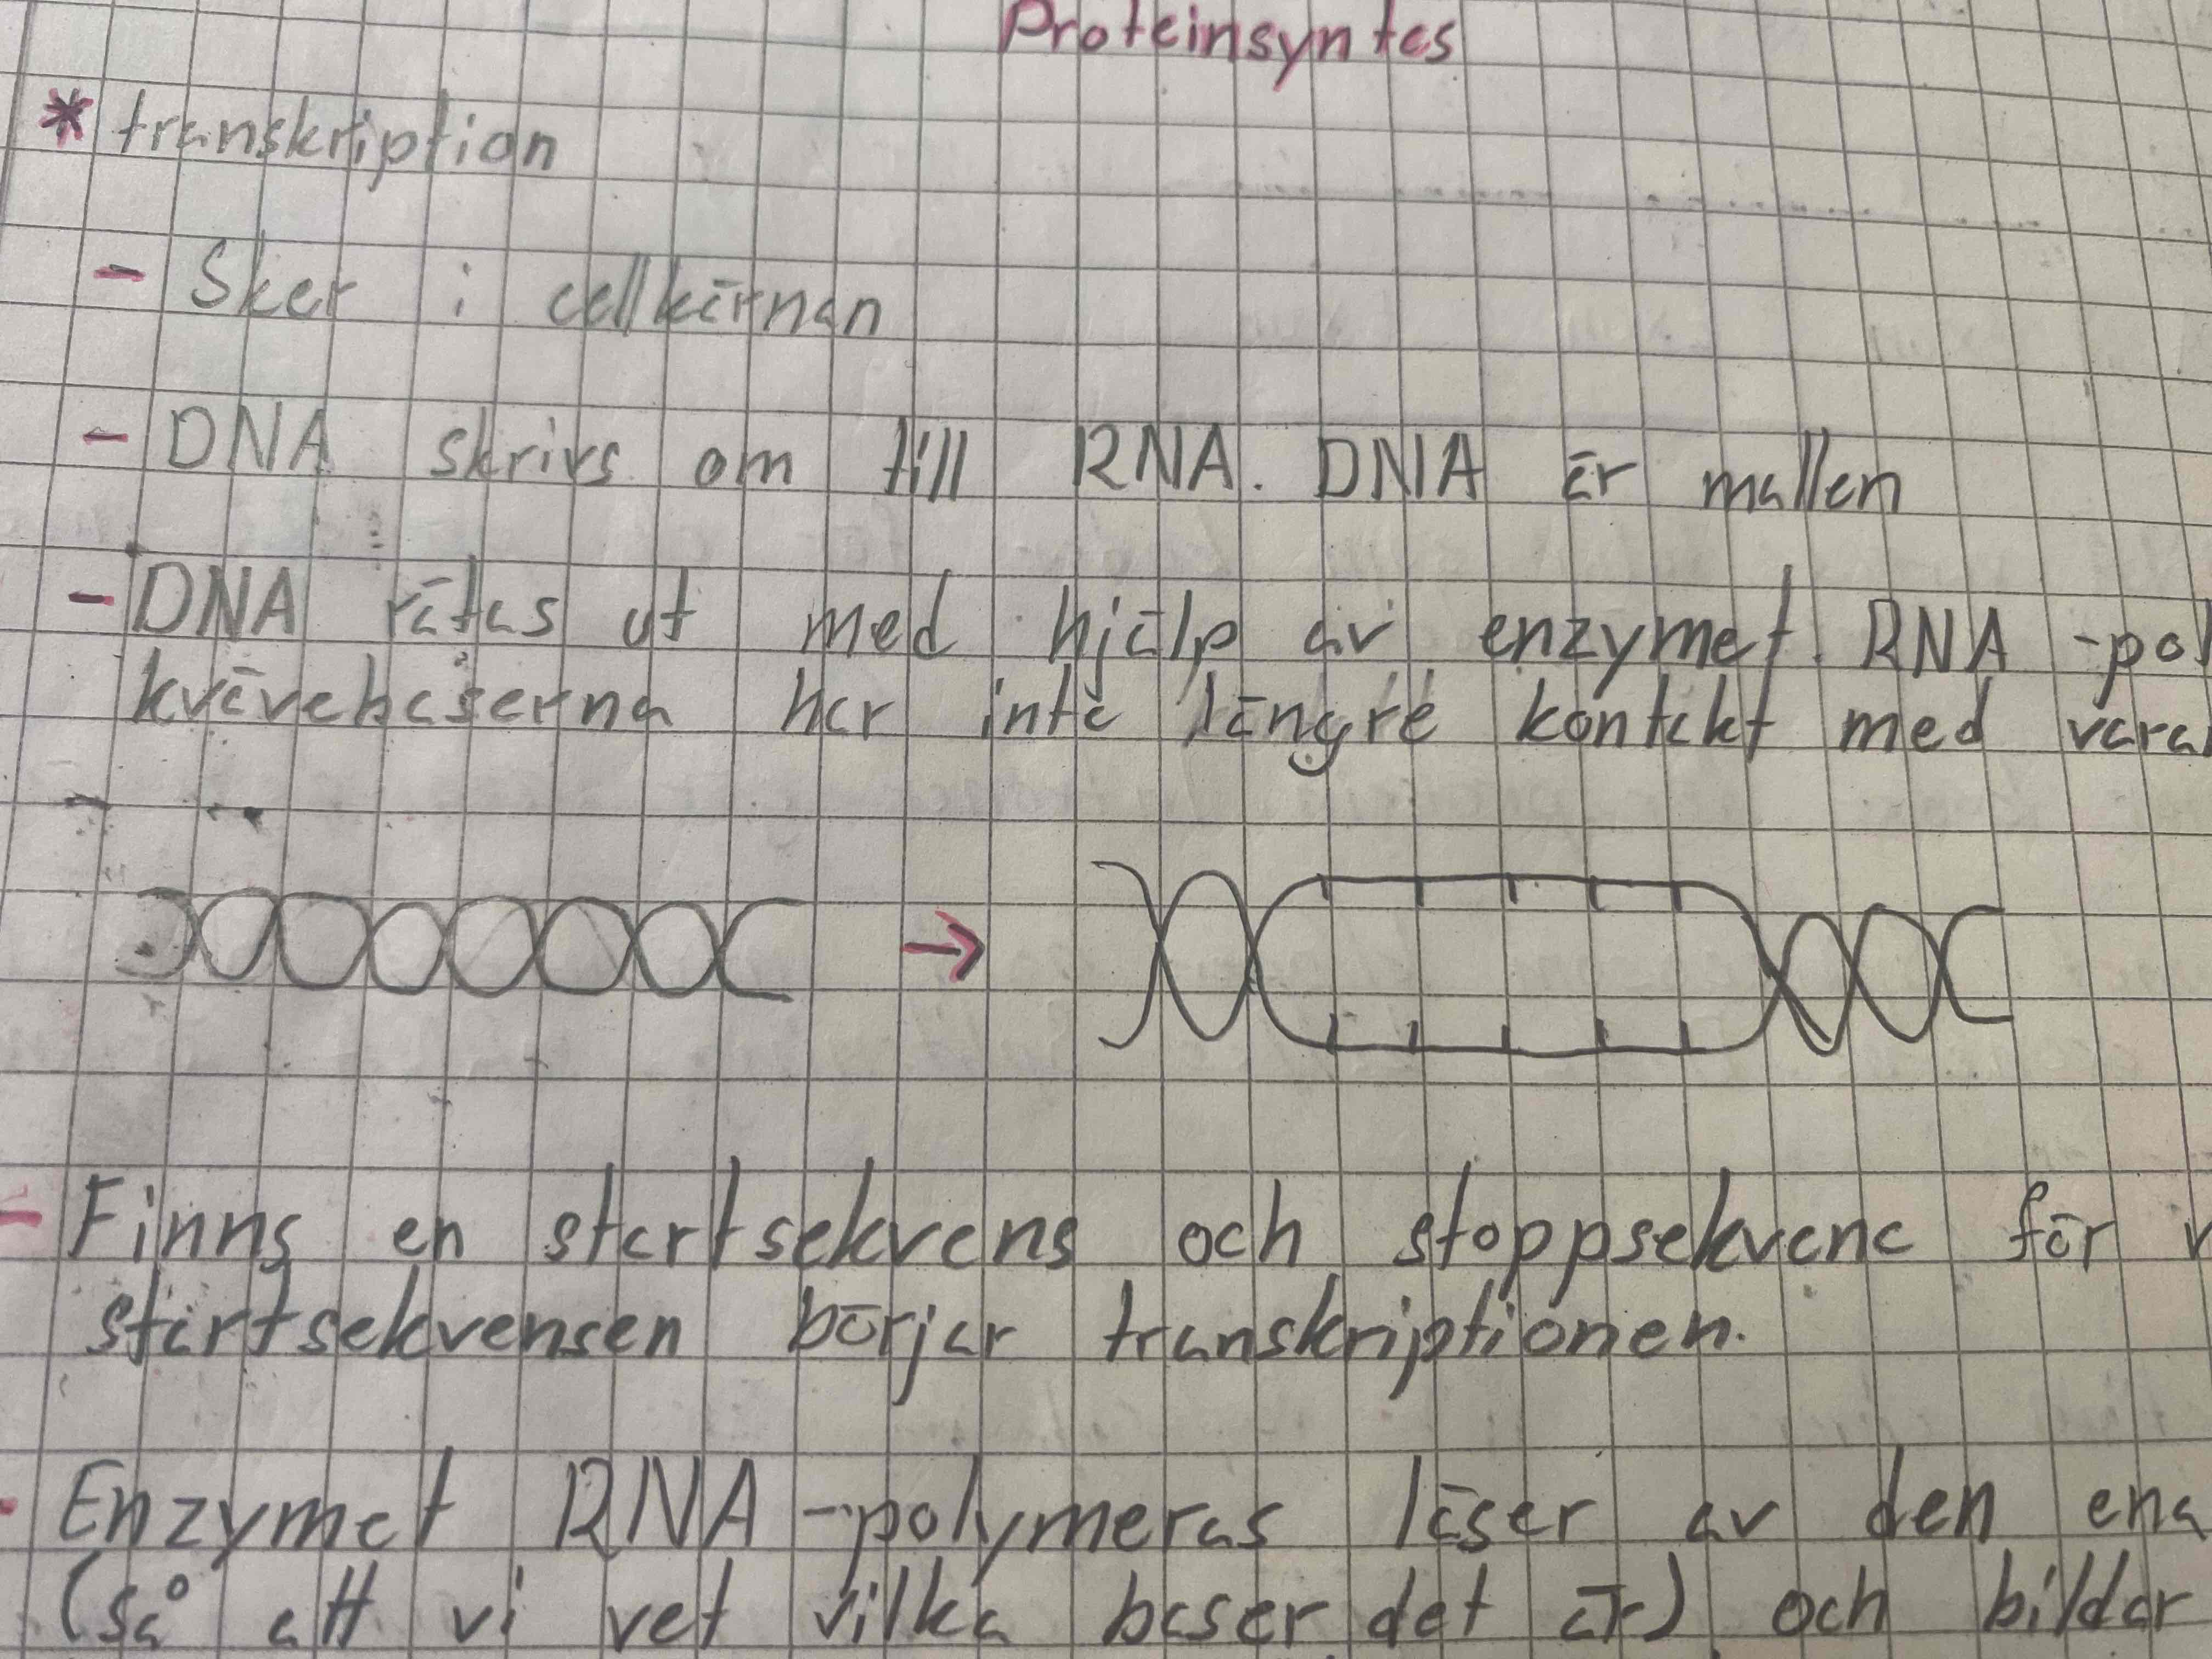 Proteinsyntes
* transkription
- Sker i cellkärnan
- DNA skrivs om till RNA. DNA är mallen
- DNA rätas ut med hjälp av enzymet RNA -pol
kvävebaserna har inte längre kontakt med vara
- Finns en startsekvens och stoppsekvenc för v
startsekvensen börjar transkriptionen.
- Enzymet RNA -polymeras läser av den ena
(så att vi vet vilka baser det är) och bildar